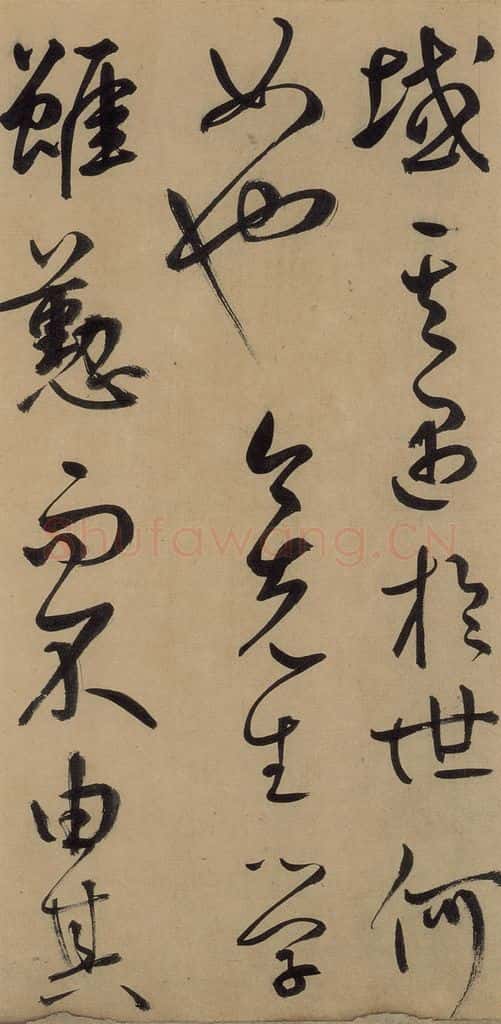 域其遇於世何
如也今先生学
雖懃而不由其
Shufawang.CN